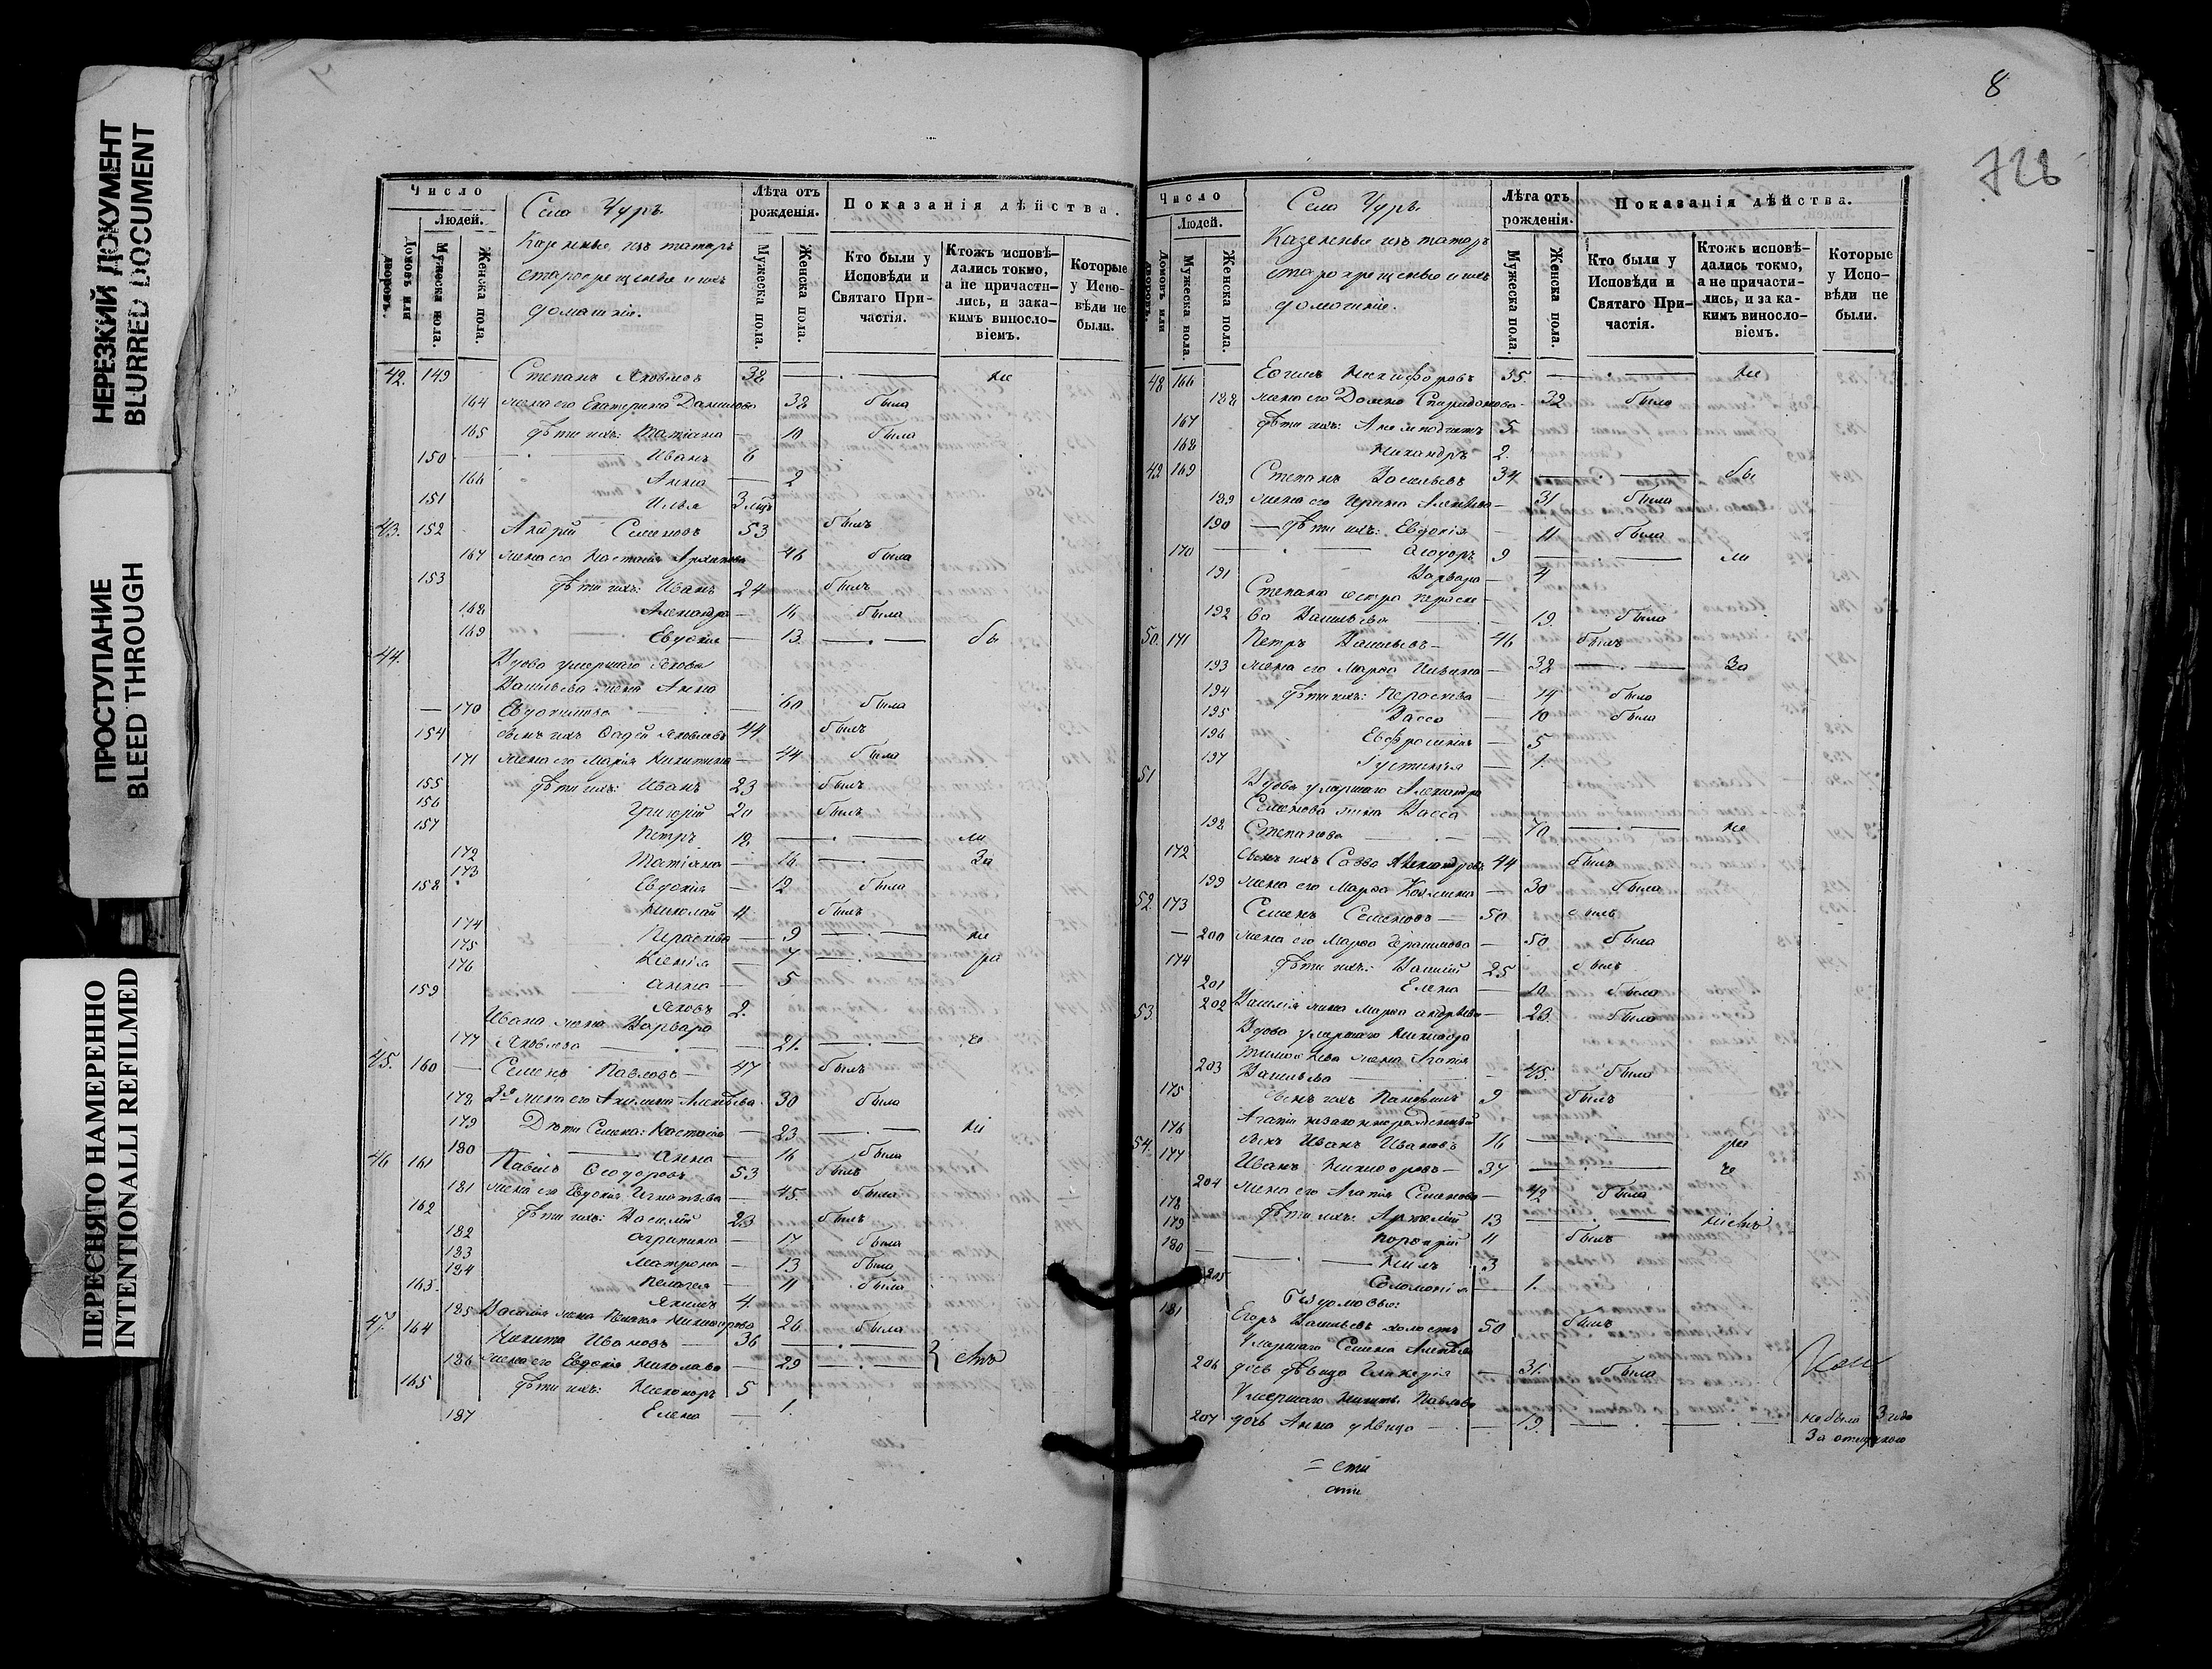 НЕРЕЗКИЙ ДОКУМЕНТ
BLURRED DOCUMENT
ПРОСТУПАНИЕ
BLEED THROUGH
ПЕРЕСНЯТО НАМЕРЕННО
INTENTIONALLI REFILMED
Число
Людей.
Домовъ или дворовъ.
Мужеска пола.
Женска пола.
Село Чуръ.
Казенные изъ татаръ
старокрещеные и ихъ
домашніи.
Лѣта отъ рожденія.
Мужеска пола.
Женска пола.
Показанія дѣйства.
Кто были у Исповѣди и Святаго Причастія.
Ктожъ исповѣдались токмо, а не причастились, и за какимъ винословіемъ.
Которые у Исповѣди не были.
42. 149 Степанъ Яковлевъ 38 — не
164 жена его Екатерина Данилова 38 была
165 дѣти ихъ: Татіана — 10 была
150 Иванъ 6
166 Анна — 2
151 Илья 3
43. 152 Андрей Семеновъ 53 былъ
167 жена его Настасія Архипова 46 была
153 дѣти ихъ: Иванъ 24 былъ
168 Александра — 16 была
169 Евдокія — 13. — бы
44. Вдова умершаго Якова
Васильева жена Анна
— 170 Евдокимова — 60 была
154 сынъ ихъ Фадей Яковлевъ 44 былъ
171 жена его Марія Никитина — 44 была
155 дѣти ихъ: Иванъ 23 былъ
156 Григорій 20 былъ
157 Петръ 18 — ли
172 Татіана — 16 — За
173 Евдокія — 12 была
158 Николай 4 былъ
174 Параскева — 9 — не
175 Ксенія — 7 — ра
176 Анна — 5
159 Яковъ 2.
Ивана жена Варвара
177 Яковлева — 21. — че
45. 160 — Семенъ Павловъ — 47 былъ
178 2я жена его Акилина Алексѣева 30 была
179 Дѣти Семена: Настасія — 23 — ні
180 Анна — 16 была
46 161 Павелъ Ѳеодоровъ 53 былъ
181 жена его Евдокія Игнатьева — 45. была
162 дѣти ихъ: Василій 23 былъ
182 Агрипина — 17 была
183 Матрона — 13 была
184 Пелагея — 11 была
163. Якимъ 4.
185 Василія жена Никифорова 26 была
47 164 Никита Ивановъ — 36 —
186 жена его Евдокія Николаева — 29 —
165 дѣти ихъ: Никаноръ 5
187 Елена — 1.
8
728
Число
Людей.
Домовъ или дворовъ.
Мужеска пола.
Женска пола.
Село Чуръ.
Казенные изъ татаръ
старокрещеные и ихъ
домашніе.
Лѣта отъ рожденія.
Мужеска пола.
Женска пола.
Показанія дѣйства.
Кто были у Исповѣди и Святаго Причастія.
Ктожъ исповѣдались токмо, а не причастились, и за какимъ винословіемъ.
Которые у Исповѣди не были.
48 166 Еѳимъ Никифоровъ 35. — не
188 жена его Домна Спиридонова 32 была
167 дѣти ихъ: Анемподистъ 5.
168 Никандръ 2.
49 169 Степанъ Васильевъ 34. — бы
189 жена его Ирина Алексѣева — 31. была
190 — дѣти ихъ: Евдокія — 11 была
170 Ѳеодоръ 9 — ли
191 Варвара — 4
Степана сестра Параске-
192 ва Васильева — 19. была
50. 171 Петръ Васильевъ — 46 былъ
193 жена его Марѳа Ильина — 38 — За
194 дѣти ихъ: Параскева — 14 была
195 Васса — 10 была
196 Евфросинія — 5
197 Густинія — 1.
51 Вдова умершаго Александра
Семенова жена Васса
198 Степанова — 70 — не
172 сынъ ихъ Савва Александровъ 44 былъ
199 жена его Марѳа Козмина — 30 была
52. 173 Семенъ Семеновъ — 50 былъ
— 200 жена его Марѳа Герасимова — 50 была
174 дѣти ихъ: Василій 25 былъ
201 Елена — 10 была
202 Василія жена Марѳа Андреева — 23. была
53. Вдова умершаго Никифора
Тимоѳеева жена Агапія
203 Васильева — 45. была
175 сынъ ихъ Памфилъ 9 былъ
Агапіи незаконнорожденный
176 сынъ Иванъ Ивановъ 16 — ра
54. 177 Иванъ Никифоровъ — 37 — че
204 жена его Агапія Семенова — 42 была
178 дѣти ихъ: Артемій 13 —
179 Порфирій 11 былъ
180 Нилъ 3
205 Соломонія — 1.
Бездомовые:
181 Егоръ Васильевъ холостъ 50 былъ
Умершаго Семена Алексѣева
206 дочь дѣвица Гликерія — 31. была
Умершаго Никиты Павлова
207 дочь Анна дѣвица — 19. — не была 3 года
За отлучкою